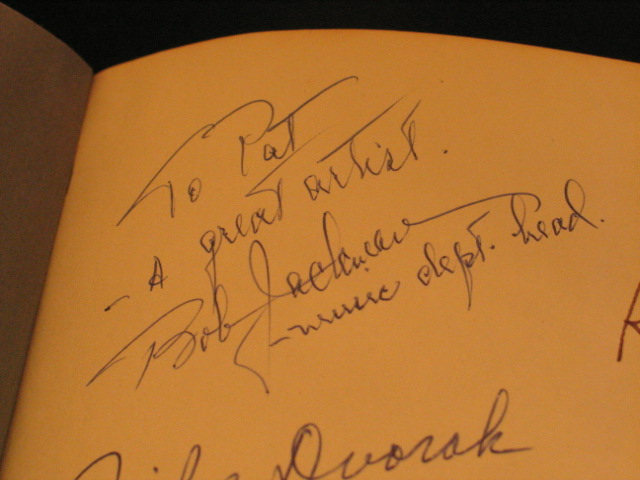 To Pat
- A great artist.
Bob Jackman
- music dept. head.
Dvorak